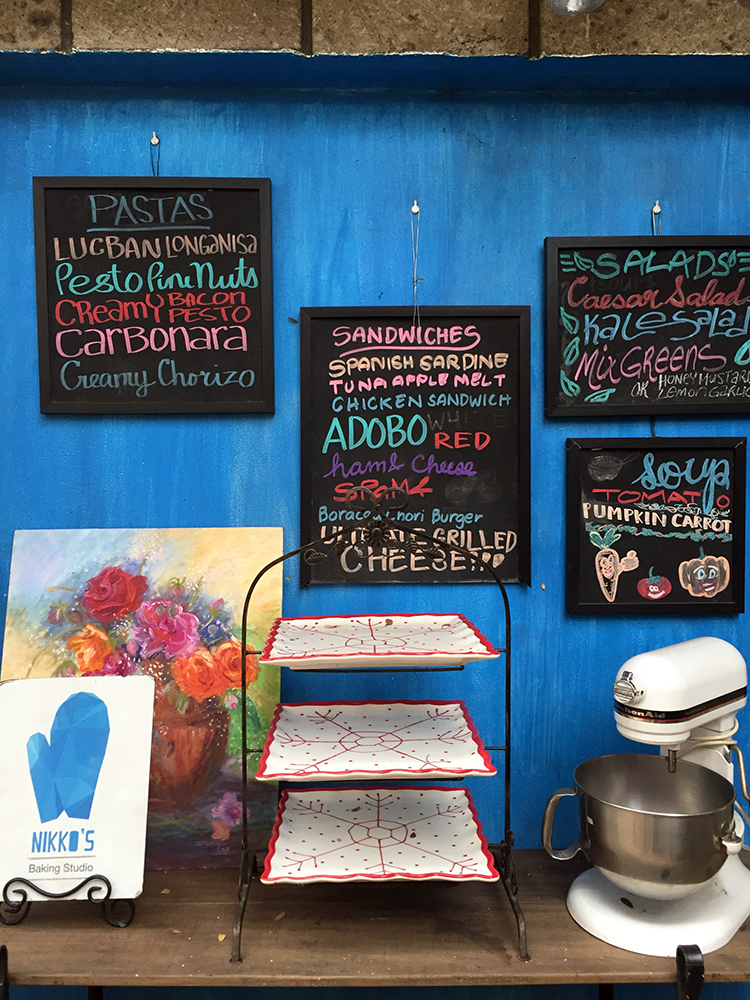 PASTAS
LUCBAN LONGANISA
Pesto Pine Nuts
CREAMY BACON PESTO
CARBONARA
Creamy Chorizo
SANDWICHES
SPANISH SARDINE
TUNA APPLE MELT
CHICKEN SANDWICH
ADOBO WHITE
RED
ham & Cheese
SPAM
Nori Burger
GRILLED
CHEESE!!!
SALADS
Caesar Salad
Kale Salad
Mix GREENS
OR HONEY MUSTARD
LEMON GARLIC
Soup
TOMATO
PUMPKIN CARROT
NIKKO'S
Baking Studio
KitchenAid